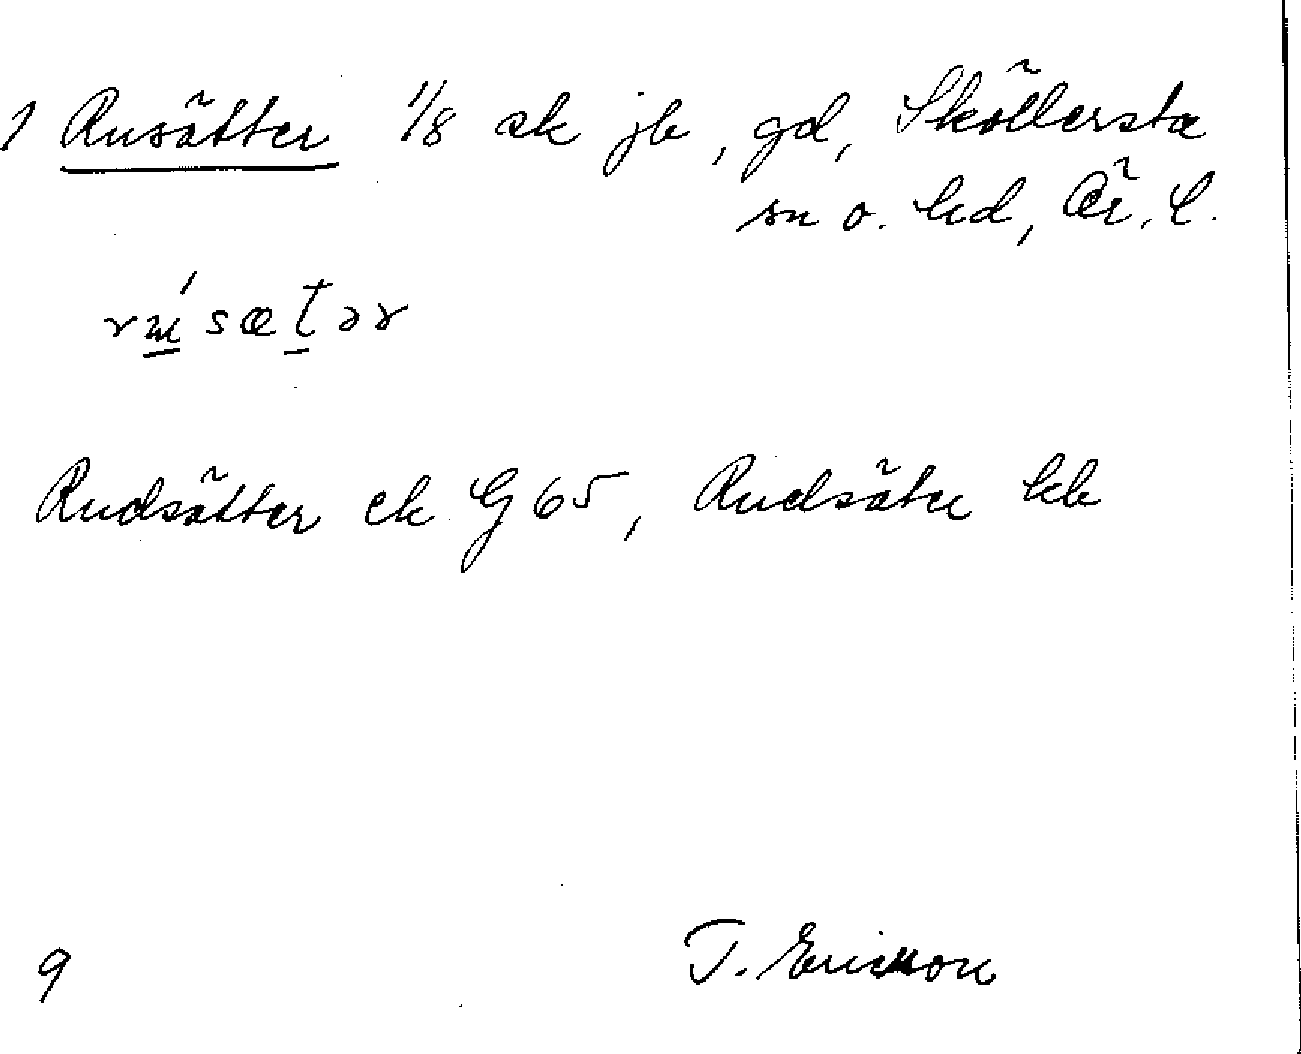 1 Rusätter 1/8 sk jb, gd, Sköllersta
sn o. hd, Ör. l.
Rudsätter ek G 65, Rudsäter kb
9 T. Ericsson